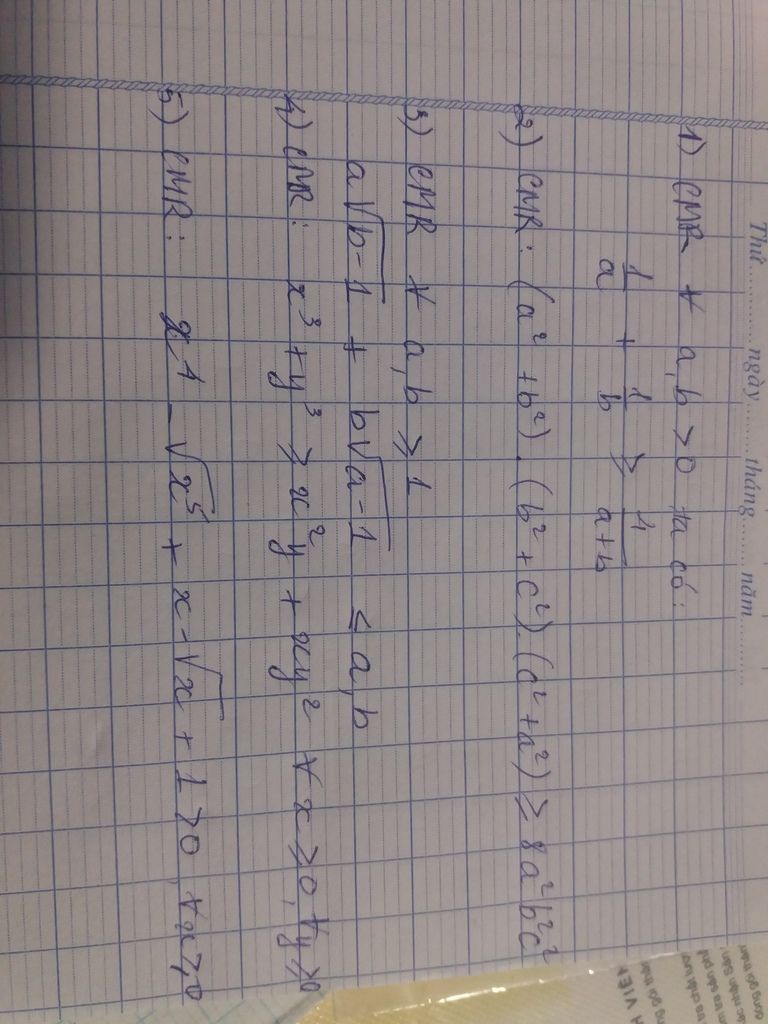 Thứ.............. ngày.......... tháng......... năm..............
1) CMR ∀ a,b > 0 ta có:
1/a + 1/b ≥ 4/(a+b)
2) CMR: (a² + b²).(b² + c²).(c² + a²) ≥ 8a²b²c²
3) CMR ∀ a,b ≥ 1
a√(b-1) + b√(a-1) ≤ a,b
4) CMR: x³ + y³ ≥ x²y + xy² ∀x ≥ 0, ∀y ≥ 0
5) CMR: x⁴ - √(x⁵) + x - √x + 1 > 0, ∀x ≥ 0